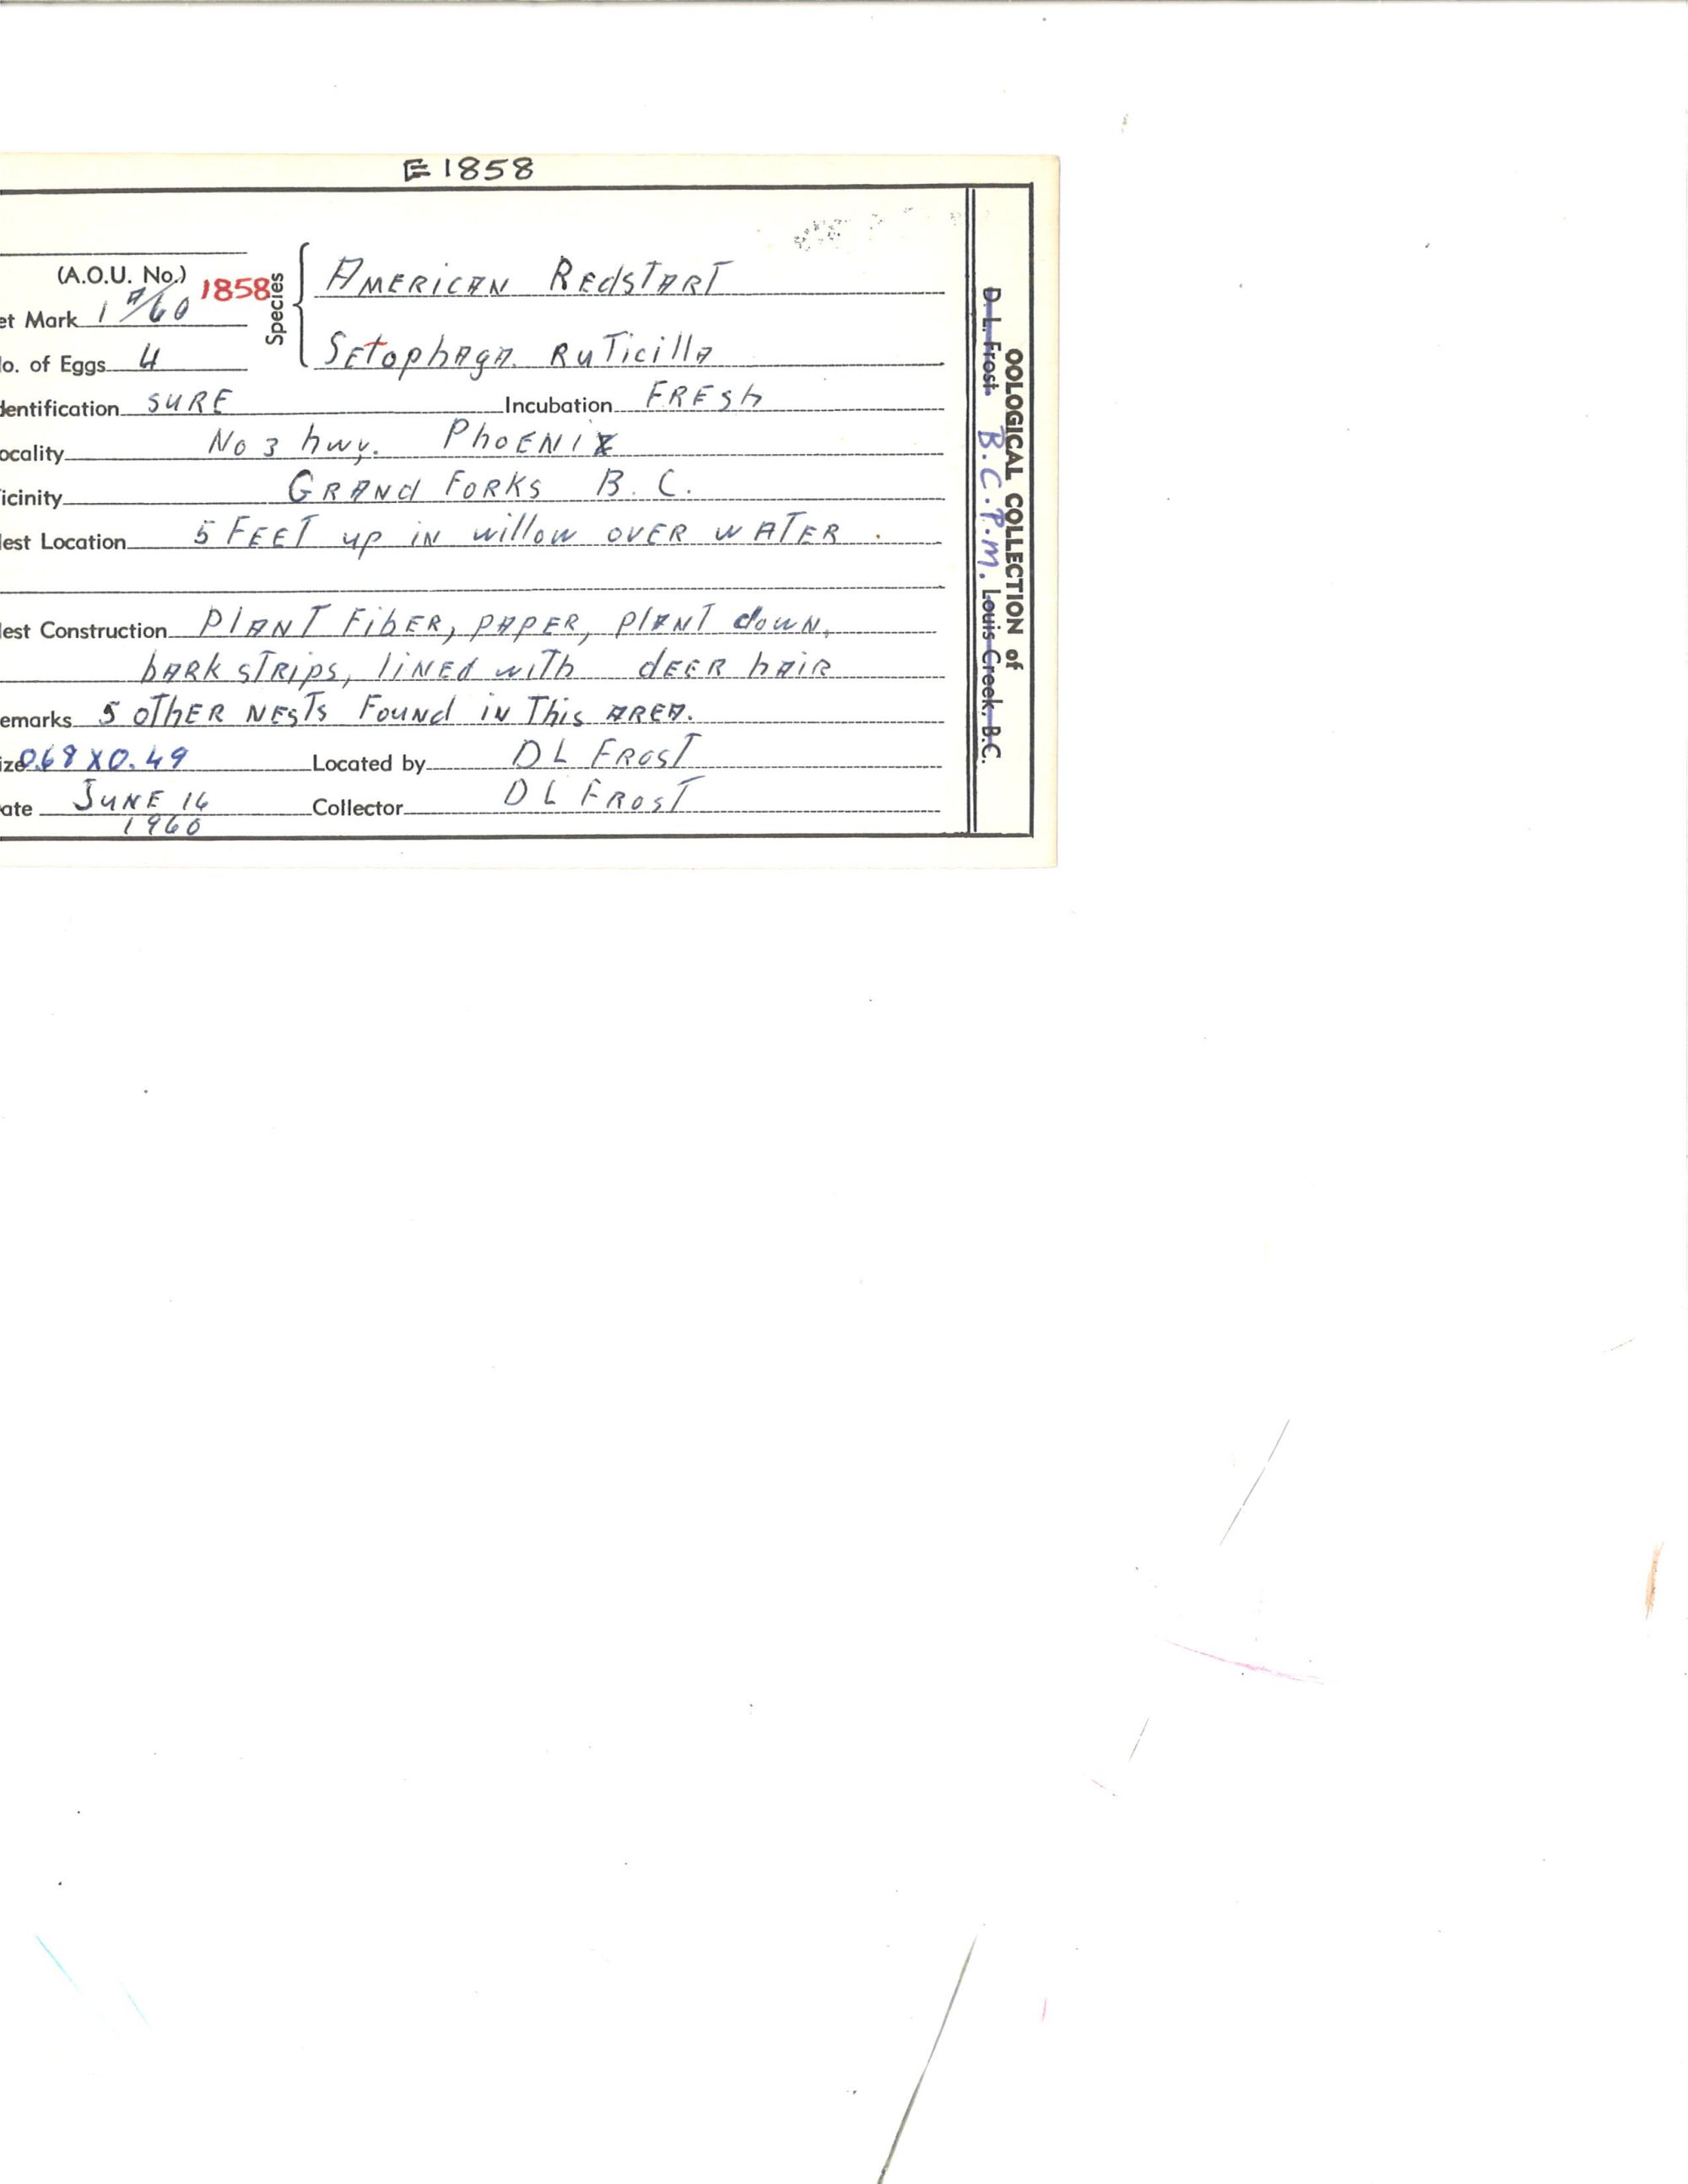 E1858
(A.O.U. No.) 1858
et Mark 1 A/60
Species
American Redstart
Setophaga Ruticilla
o. of Eggs 4
dentification SURE Incubation FRESh
ocality No 3 hwy. PhoENIX
icinity GRANd FoRKS B. C.
lest Location 5 FEET up iN willow OVER wATER.
lest Construction PlANT FibER, PAPER, PlANT dowN,
bARK sTRips, liNEd wiTh dEER hAiR
emarks 5 oThER NEsTs FouNd iN This AREA.
ize 0.68 X 0.49 Located by D L FRosT
ate JuNE 14 Collector D L FRosT
1960
OOLOGICAL COLLECTION of
D. L. Frost B.C.P.M. Louis Creek, B.C.